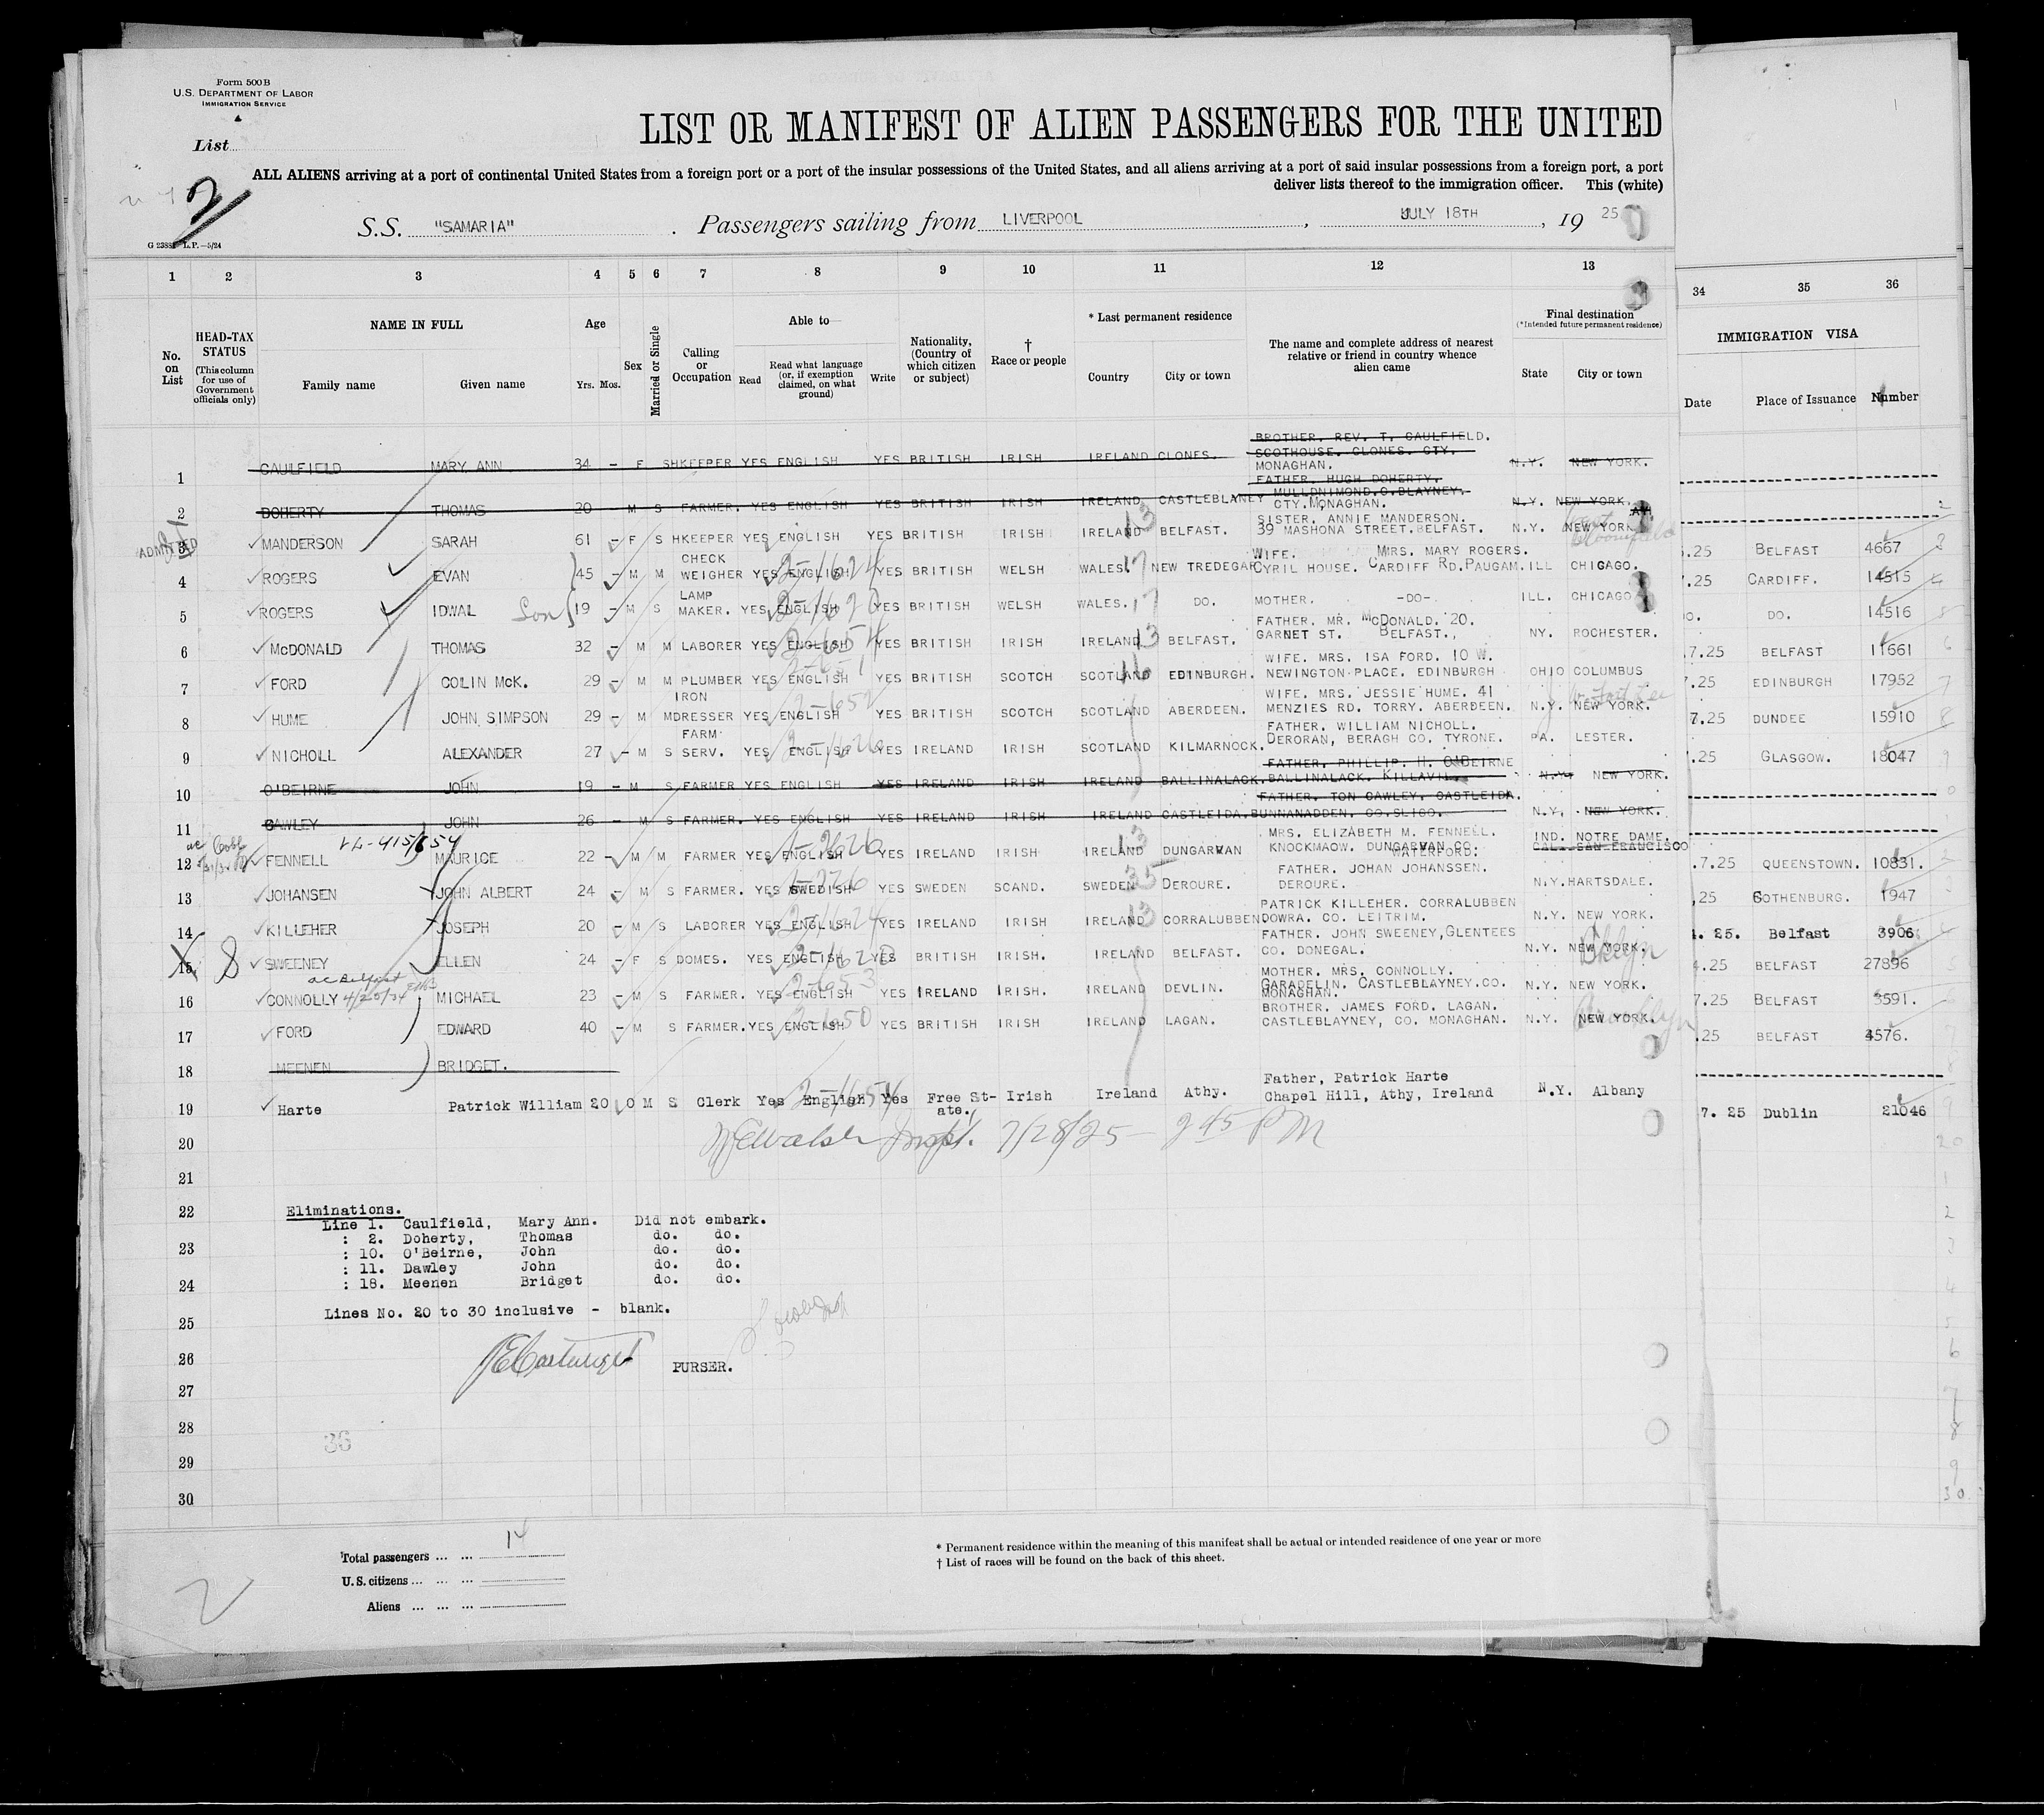 Form 500B
U.S. DEPARTMENT OF LABOR
IMMIGRATION SERVICE
List
2
G 2388 L.P.—5/24
LIST OR MANIFEST OF ALIEN PASSENGERS FOR THE UNITED
ALL ALIENS arriving at a port of continental United States from a foreign port or a port of the insular possessions of the United States, and all aliens arriving at a port of said insular possessions from a foreign port, a port
deliver lists thereof to the immigration officer. This (white)
S.S. "SAMARIA" . Passengers sailing from LIVERPOOL , JULY 18TH , 19 25
1 2 3 4 5 6 7 8 9 10 11 12 13 34 35 36
No. on List
HEAD-TAX STATUS (This column for use of Government officials only)
NAME IN FULL
Family name Given name
Age
Yrs. Mos.
Sex
Married or Single
Calling or Occupation
Able to
Read
Read what language (or, if exemption claimed, on what ground)
Write
Nationality, (Country of which citizen or subject)
† Race or people
* Last permanent residence
Country City or town
The name and complete address of nearest relative or friend in country whence alien came
Final destination
(*Intended future permanent residence)
State City or town
IMMIGRATION VISA
Date Place of Issuance Number
1 CAULFIELD MARY ANN 34 - F SHKEEPER YES ENGLISH YES BRITISH IRISH IRELAND CLONES. BROTHER. REV. T. CAULFIELD. SCOTHOUSE. CLONES. CTY. MONAGHAN. N.Y. NEW YORK.
2 DOHERTY THOMAS 20 - M S FARMER. YES ENGLISH YES BRITISH IRISH IRELAND CASTLEBLANEY FATHER. HUGH DOHERTY. MULLDNIMOND.C.BLAYNEY. CTY.MONAGHAN. N.Y. NEW YORK.
ADMITTED
3 MANDERSON SARAH 61 - F S HKEEPER YES ENGLISH YES BRITISH IRISH IRELAND 13 BELFAST. SISTER. ANNIE MANDERSON. 39 MASHONA STREET.BELFAST. N.Y. NEW YORK Bloomfield .25 BELFAST 4667 3
4 ROGERS EVAN 45 - M M CHECK WEIGHER YES ENGLISH YES BRITISH WELSH WALES. 17 NEW TREDEGAR WIFE. MRS. MARY ROGERS. CYRIL HOUSE. CARDIFF RD.PAUGAM. ILL CHICAGO. .25 CARDIFF. 14515 4
5 ROGERS IDWAL Son 19 - M S LAMP MAKER. YES ENGLISH YES BRITISH WELSH WALES. 17 DO. MOTHER. -DO-. ILL. CHICAGO DO. 14516 5
6 McDONALD THOMAS 32 M M LABORER YES ENGLISH 2-654 YES BRITISH IRISH IRELAND 13 BELFAST. FATHER. MR. McDONALD. 20. GARNET ST. BELFAST., NY. ROCHESTER. .7.25 BELFAST 11661 6
7 FORD COLIN McK. 29 - M M PLUMBER YES ENGLISH 2-651 YES BRITISH SCOTCH SCOTLAND 16 EDINBURGH. WIFE. MRS. ISA FORD. 10 W. NEWINGTON PLACE. EDINBURGH OHIO COLUMBUS .25 EDINBURGH 17952 7
8 HUME JOHN SIMPSON 29 - M M IRON DRESSER YES ENGLISH 2-652 YES BRITISH SCOTCH SCOTLAND ABERDEEN. WIFE. MRS. JESSIE HUME. 41 MENZIES RD. TORRY. ABERDEEN. N.Y. NEW YORK. 7.25 DUNDEE 15910 8
9 NICHOLL ALEXANDER 27 - M S FARM SERV. YES ENGLISH YES IRELAND IRISH SCOTLAND KILMARNOCK. FATHER. WILLIAM NICHOLL. DERORAN, BERAGH CO. TYRONE. PA. LESTER. .25 GLASGOW. 18047 9
10 O'BEIRNE JOHN 19 - M S FARMER YES ENGLISH YES IRELAND IRISH IRELAND BALLINALACK. FATHER. PHILLIP. H. O'BEIRNE BALLINALACK. KILLAVIL. N.Y. NEW YORK.
11 CAWLEY JOHN 26 - M S FARMER. YES ENGLISH YES IRELAND IRISH IRELAND CASTLEIDA. FATHER. TON CAWLEY. CASTLEIDA. BUNNANADDEN. CO.SLIGO. N.Y. NEW YORK.
12 FENNELL MAURICE 22 - M M FARMER YES ENGLISH YES IRELAND IRISH IRELAND 13 DUNGARVAN MRS. ELIZABETH M. FENNELL. KNOCKMAOW. DUNGARVAN CO. WATERFORD. IND. NOTRE DAME. CAL. SAN FRANCISCO .7.25 QUEENSTOWN. 10831.
13 JOHANSEN JOHN ALBERT 24 - M S FARMER. YES SWEDISH YES SWEDEN SCAND. SWEDEN 35 DEROURE. FATHER. JOHAN JOHANSSEN. DEROURE. N.Y. HARTSDALE. .25 GOTHENBURG. 1947
14 KILLEHER JOSEPH 20 - M S LABORER YES ENGLISH YES IRELAND IRISH IRELAND 13 CORRALUBBEN PATRICK KILLEHER. CORRALUBBEN DOWRA. CO. LEITRIM. N.Y. NEW YORK. . 25. Belfast 3906
15 SWEENEY ELLEN 24 - F S DOMES. YES ENGLISH YES BRITISH IRISH. IRELAND BELFAST. FATHER. JOHN SWEENEY,GLENTEES CO. DONEGAL. N.Y. NEW YORK. Bklyn .25 BELFAST 27896
16 CONNOLLY MICHAEL 23 - M S FARMER. YES ENGLISH 2-653 YES IRELAND IRISH. IRELAND DEVLIN. MOTHER. MRS. CONNOLLY. GARADELIN. CASTLEBLAYNEY.CO. MONAGHAN. N.Y. NEW YORK. 7.25 BELFAST 3591.
17 FORD EDWARD 40 - M S FARMER. YES ENGLISH 2-650 YES BRITISH IRISH IRELAND LAGAN. BROTHER. JAMES FORD. LAGAN. CASTLEBLAYNEY, CO. MONAGHAN. N.Y. NEW YORK. Brooklyn .25 BELFAST 4576.
18 MEENEN BRIDGET.
19 Harte Patrick William 20 0 M S Clerk Yes English Yes Free St-ate. Irish Ireland Athy. Father, Patrick Harte Chapel Hill, Athy, Ireland N.Y. Albany 7. 25 Dublin 21046
20 Walsh Inspt. 7/28/25 — 2 45 PM
21
22 Eliminations.
Line 1. Caulfield, Mary Ann. Did not embark.
: 2. Doherty, Thomas do. do.
23 : 10. O'Beirne, John do. do.
: 11. Dawley John do. do.
24 : 18. Meenen Bridget do. do.
Lines No. 20 to 30 inclusive - blank.
25
26 PURSER.
27
28 36
29
30
Total passengers ... ... 14
U.S. citizens ... ... ...
Aliens ... ... ...
* Permanent residence within the meaning of this manifest shall be actual or intended residence of one year or more
† List of races will be found on the back of this sheet.